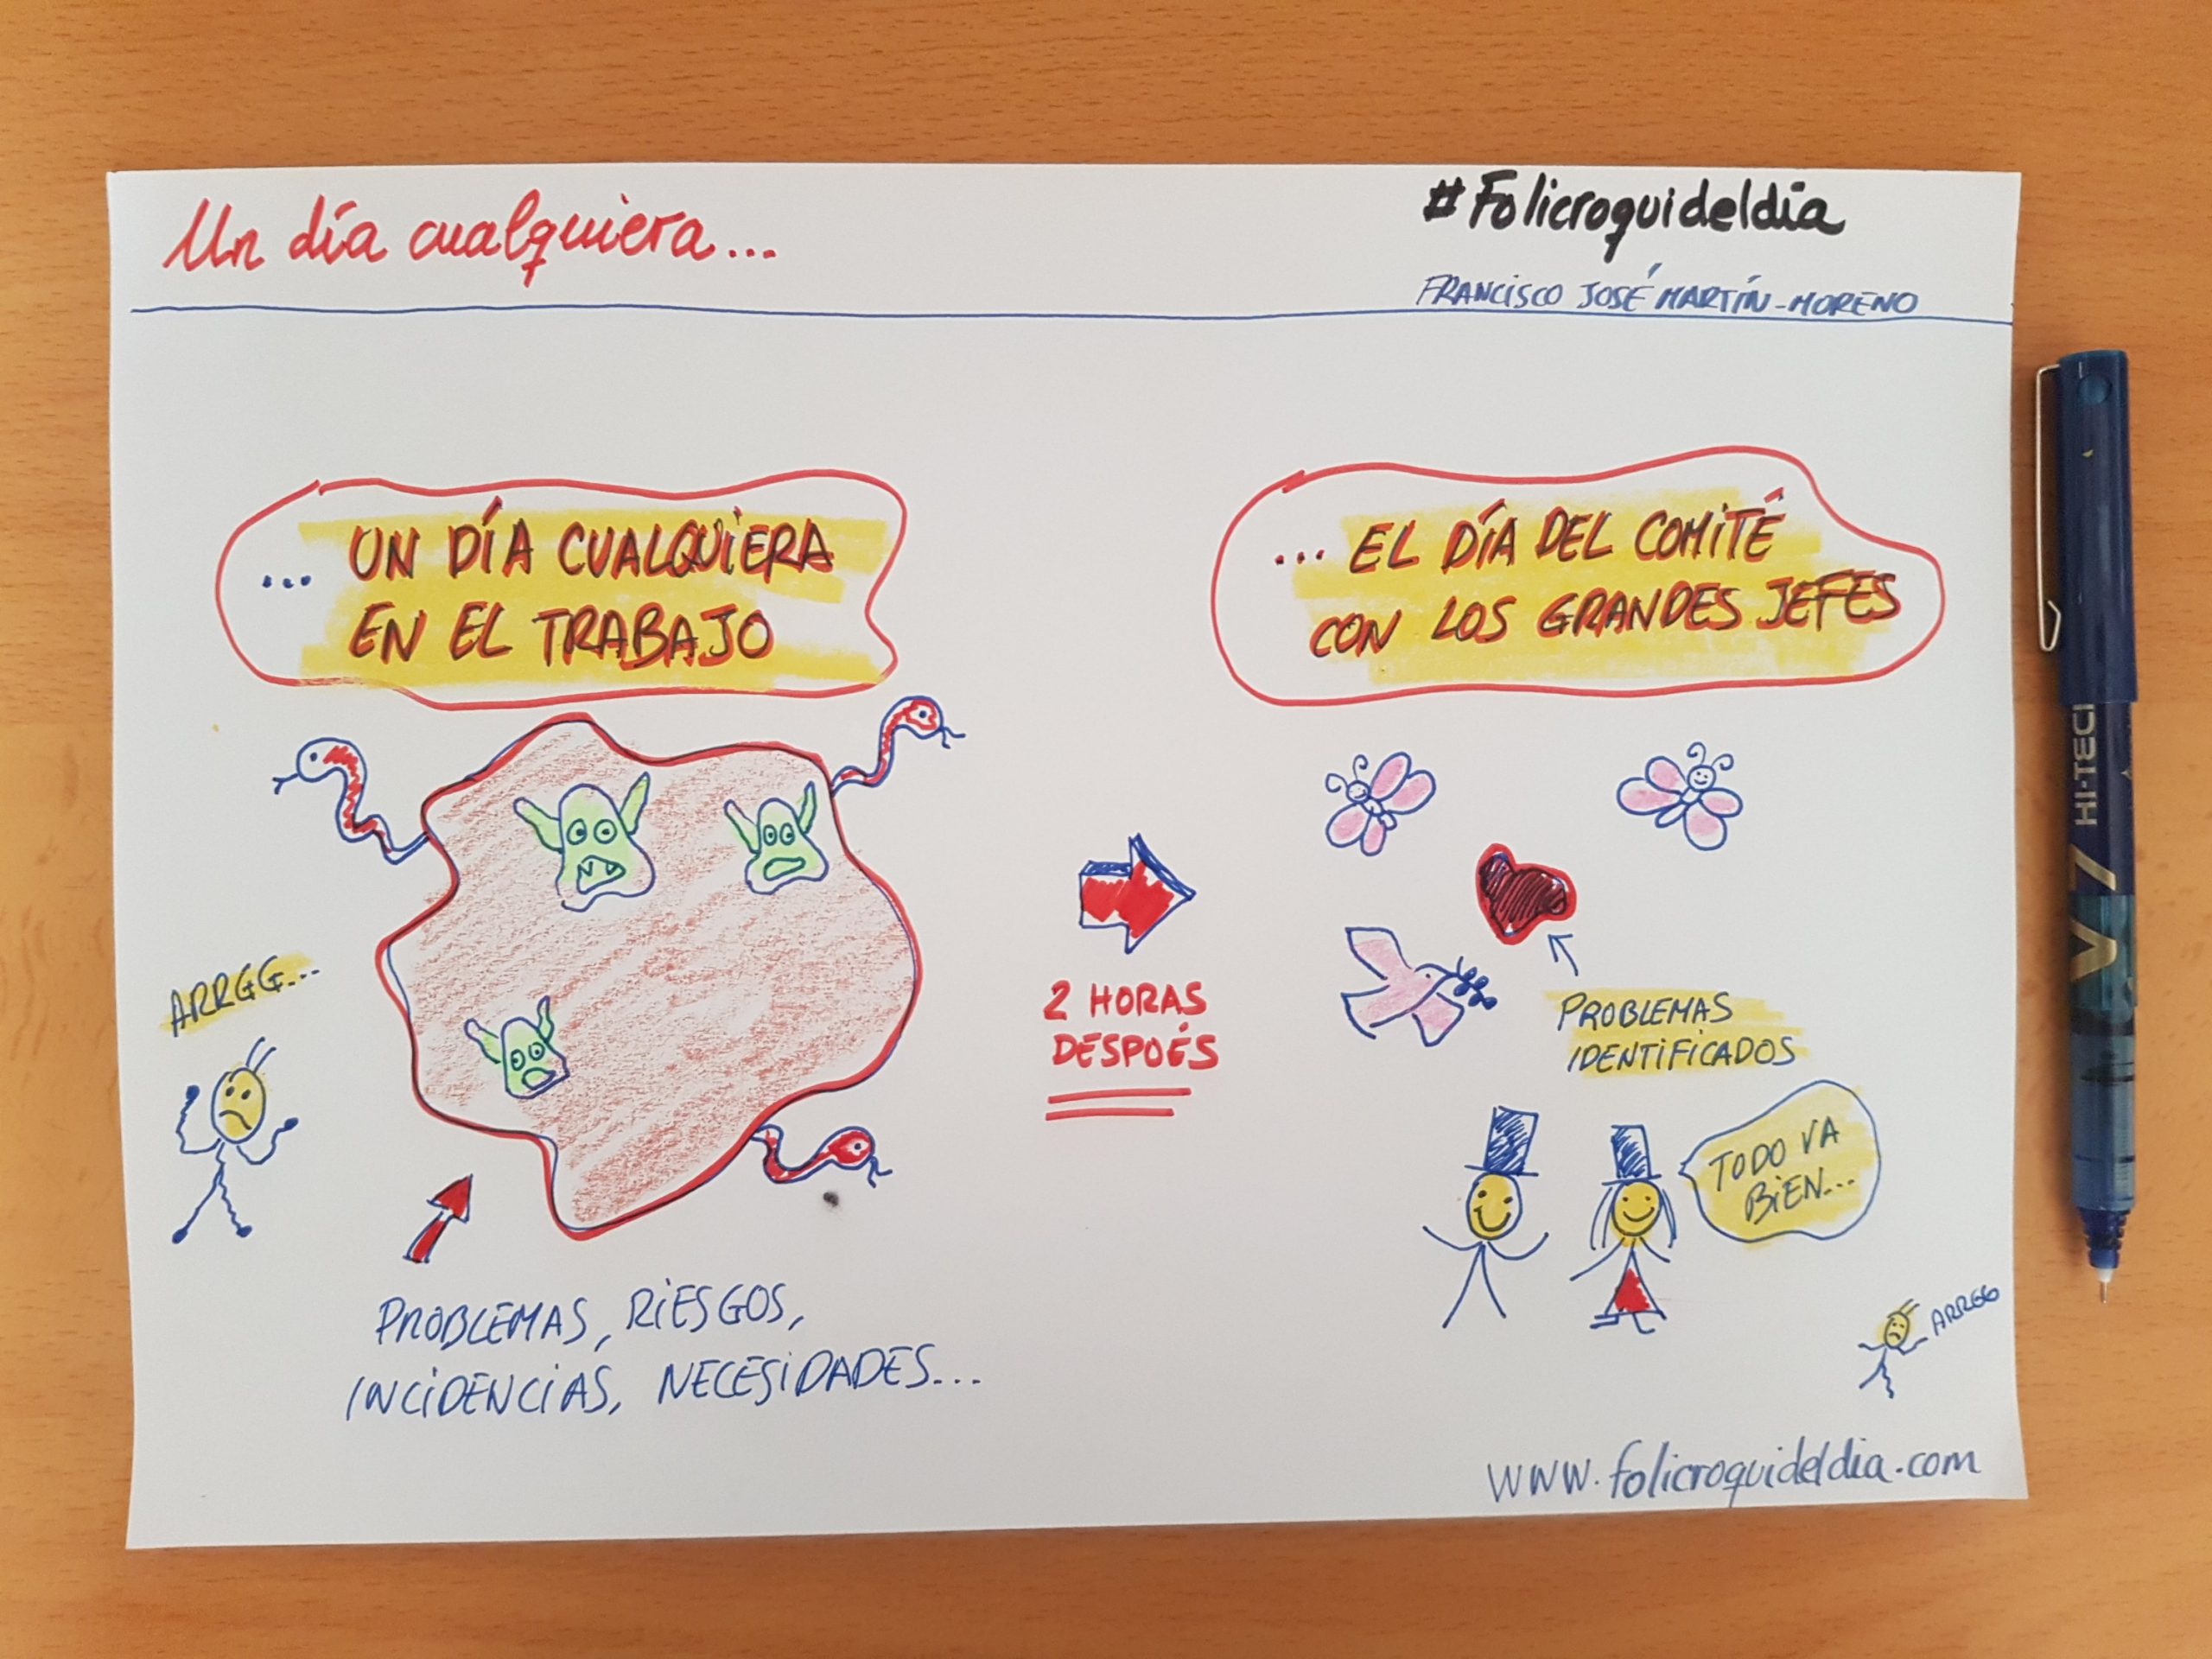 Un día cualquiera...
#Folicroquideldía
FRANCISCO JOSÉ MARTÍN-MORENO
... UN DÍA CUALQUIERA
EN EL TRABAJO
... EL DÍA DEL COMITÉ
CON LOS GRANDES JEFES
ARRGG...
2 HORAS
DESPUÉS
PROBLEMAS
IDENTIFICADOS
TODO VA
BIEN...
PROBLEMAS, RIESGOS,
INCIDENCIAS, NECESIDADES...
ARRGG
www.folicroquideldia.com
V7 HI-TEC